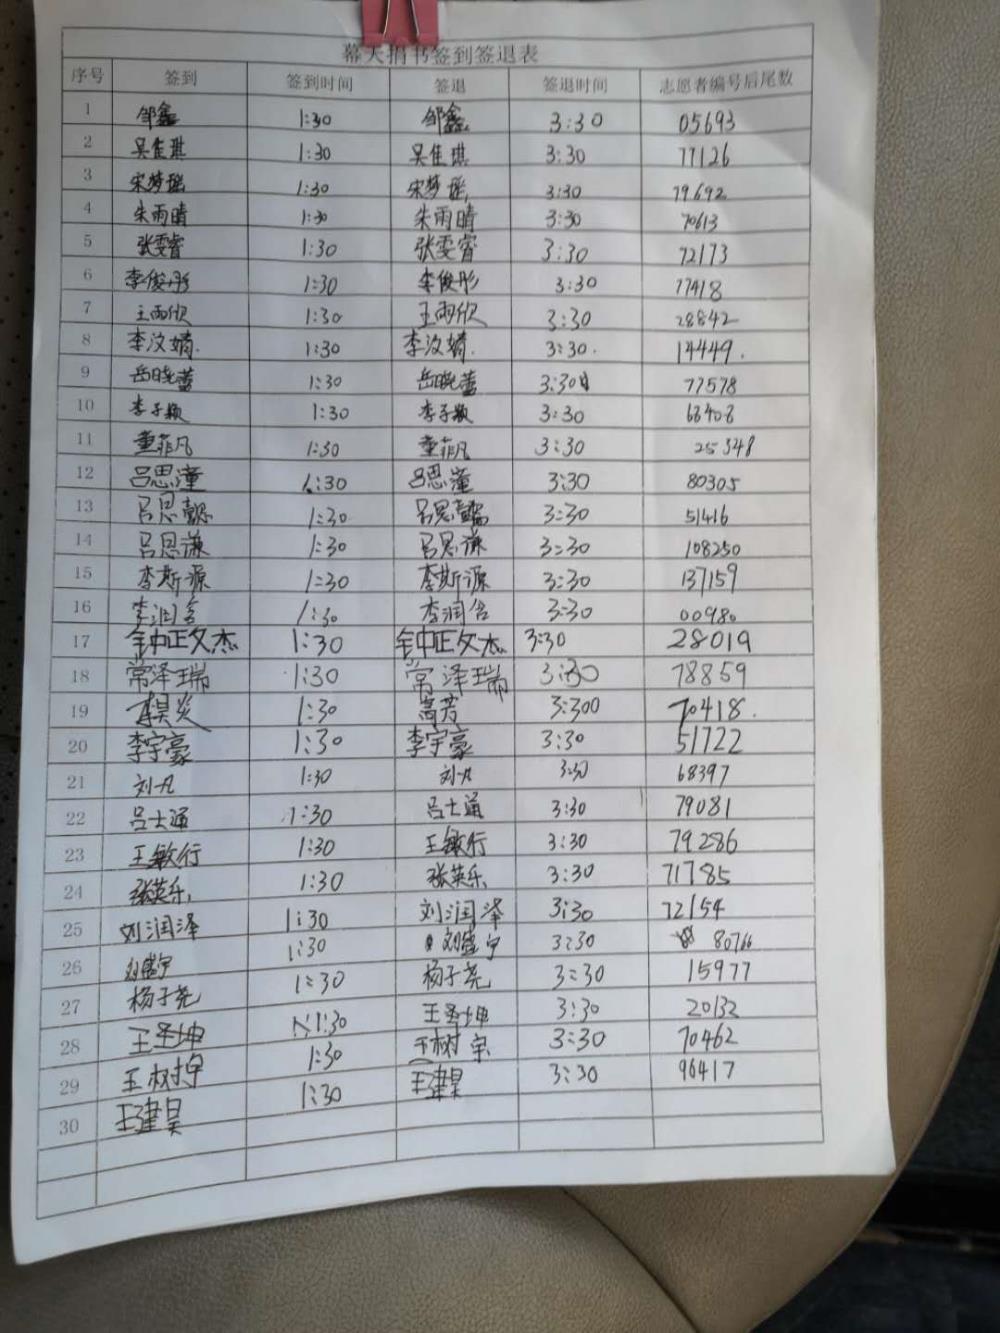 幕天捐书签到签退表
序号 签到 签到时间 签退 签退时间 志愿者编号后尾数
1 邹鑫 1:30 邹鑫 3:30 05693
2 吴佳琪 1:30 吴佳琪 3:30 77126
3 宋梦瑶 1:30 宋梦瑶 3:30 79692
4 朱雨晴 1:30 朱雨晴 3:30 70613
5 张雯睿 1:30 张雯睿 3:30 72173
6 李俊彤 1:30 李俊彤 3:30 77418
7 王雨欣 1:30 王雨欣 3:30 28842
8 李汶婧. 1:30 李汶婧. 3:30. 14449.
9 1:30 3:30 77578
10 李子颖 1:30 李子颖 3:30 68408
11 董菲凡 1:30 董菲凡 3:30 25348
12 吕思潼 1:30 吕思潼 3:30 80305
13 吕思懿 1:30 吕思懿 3:30 51416
14 吕思谦 1:30 吕思谦 3:30 108250
15 李斯源 1:30 李斯源 3:30 137159
16 李润 1:30 李润 3:30 00980
17 正文杰 1:30 正文杰 3:30 28019
18 常泽瑞 1:30 常泽瑞 3:30 78859
19 1:30 高芳 3:300 70418.
20 李宇豪 1:30 李宇豪 3:30 51722
21 刘凡 1:30 刘凡 3:30 68397
22 吕士通 1:30 吕士通 3:30 79081
23 王敏行 1:30 王敏行 3:30 79286
24 张英乐 1:30 张英乐 3:30 71785
25 刘润泽 1:30 刘润泽 3:30 72154
26 刘盛宇 1:30 刘盛宇 3:30 80766
27 杨子尧 1:30 杨子尧 3:30 15977
28 王圣坤 1:30 王圣坤 3:30 20132
29 王树宇 1:30 王树宇 3:30 70462
30 王建昊 1:30 王建昊 3:30 96417